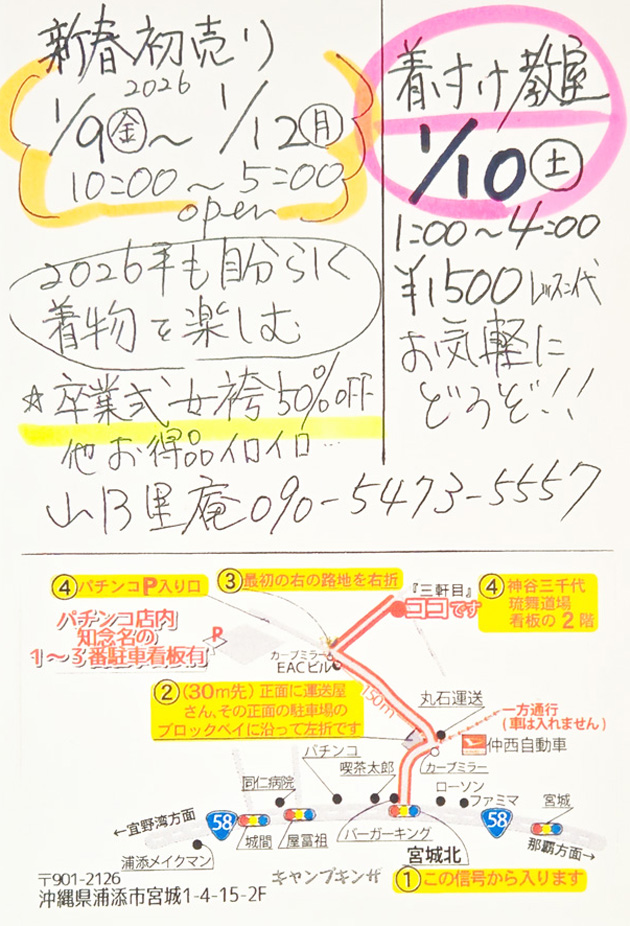 新春初売り
2026
1/9㊎～1/12㊊
10:00～5:00
open
2026年も自分らしく
着物を楽しむ
☆卒業式女袴50%OFF
他お得品イロイロ…
着付け教室
1/10㊏
1:00～4:00
¥1500レッスン代
お気軽に
どうぞ!!
090-5473-5557
④パチンコP入り口
③最初の右の路地を右折
『三軒目』
ココです
④神谷三千代
琉舞道場
看板の2階
パチンコ店内
知念名の
1～3番駐車看板有
P
カーブミラー
EACビル
150m
②(30m先)正面に運送屋
さん、その正面の駐車場の
ブロックベイに沿って左折です
丸石運送
一方通行
(車は入れません)
仲西自動車
カーブミラー
パチンコ
喫茶太郎
同仁病院
ローソン
ファミマ
宮城
←宜野湾方面
58
城間
屋冨祖
バーガーキング
58
那覇方面→
浦添メイクマン
宮城北
キャンプキンザー
①この信号から入ります
〒901-2126
沖縄県浦添市宮城1-4-15-2F